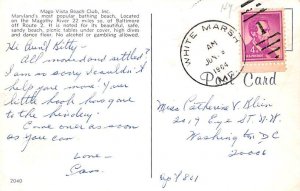 Mago Vista Beach Club, Inc.
Maryland's most popular bathing beach. Located
on the Magothy River 22 miles so. of Baltimore
off Route 2. It is noted for its beautiful, safe,
sandy beach, picnic tables under cover, high
dives and dance floor. No alcohol or gambling allowed.
Hi Aunt Kitty -
All moved and settled?
I'm so sorry I couldn't
help you move. Your
little book has gone
to the bindery.
Come over as soon
as you can
Love -
Cass.
2040
WHITE MARSH
AM
1964
MD.
4¢
Post Card
Miss Catherine V Blinn
2019 Eye St. N.W.
Washington DC
20006